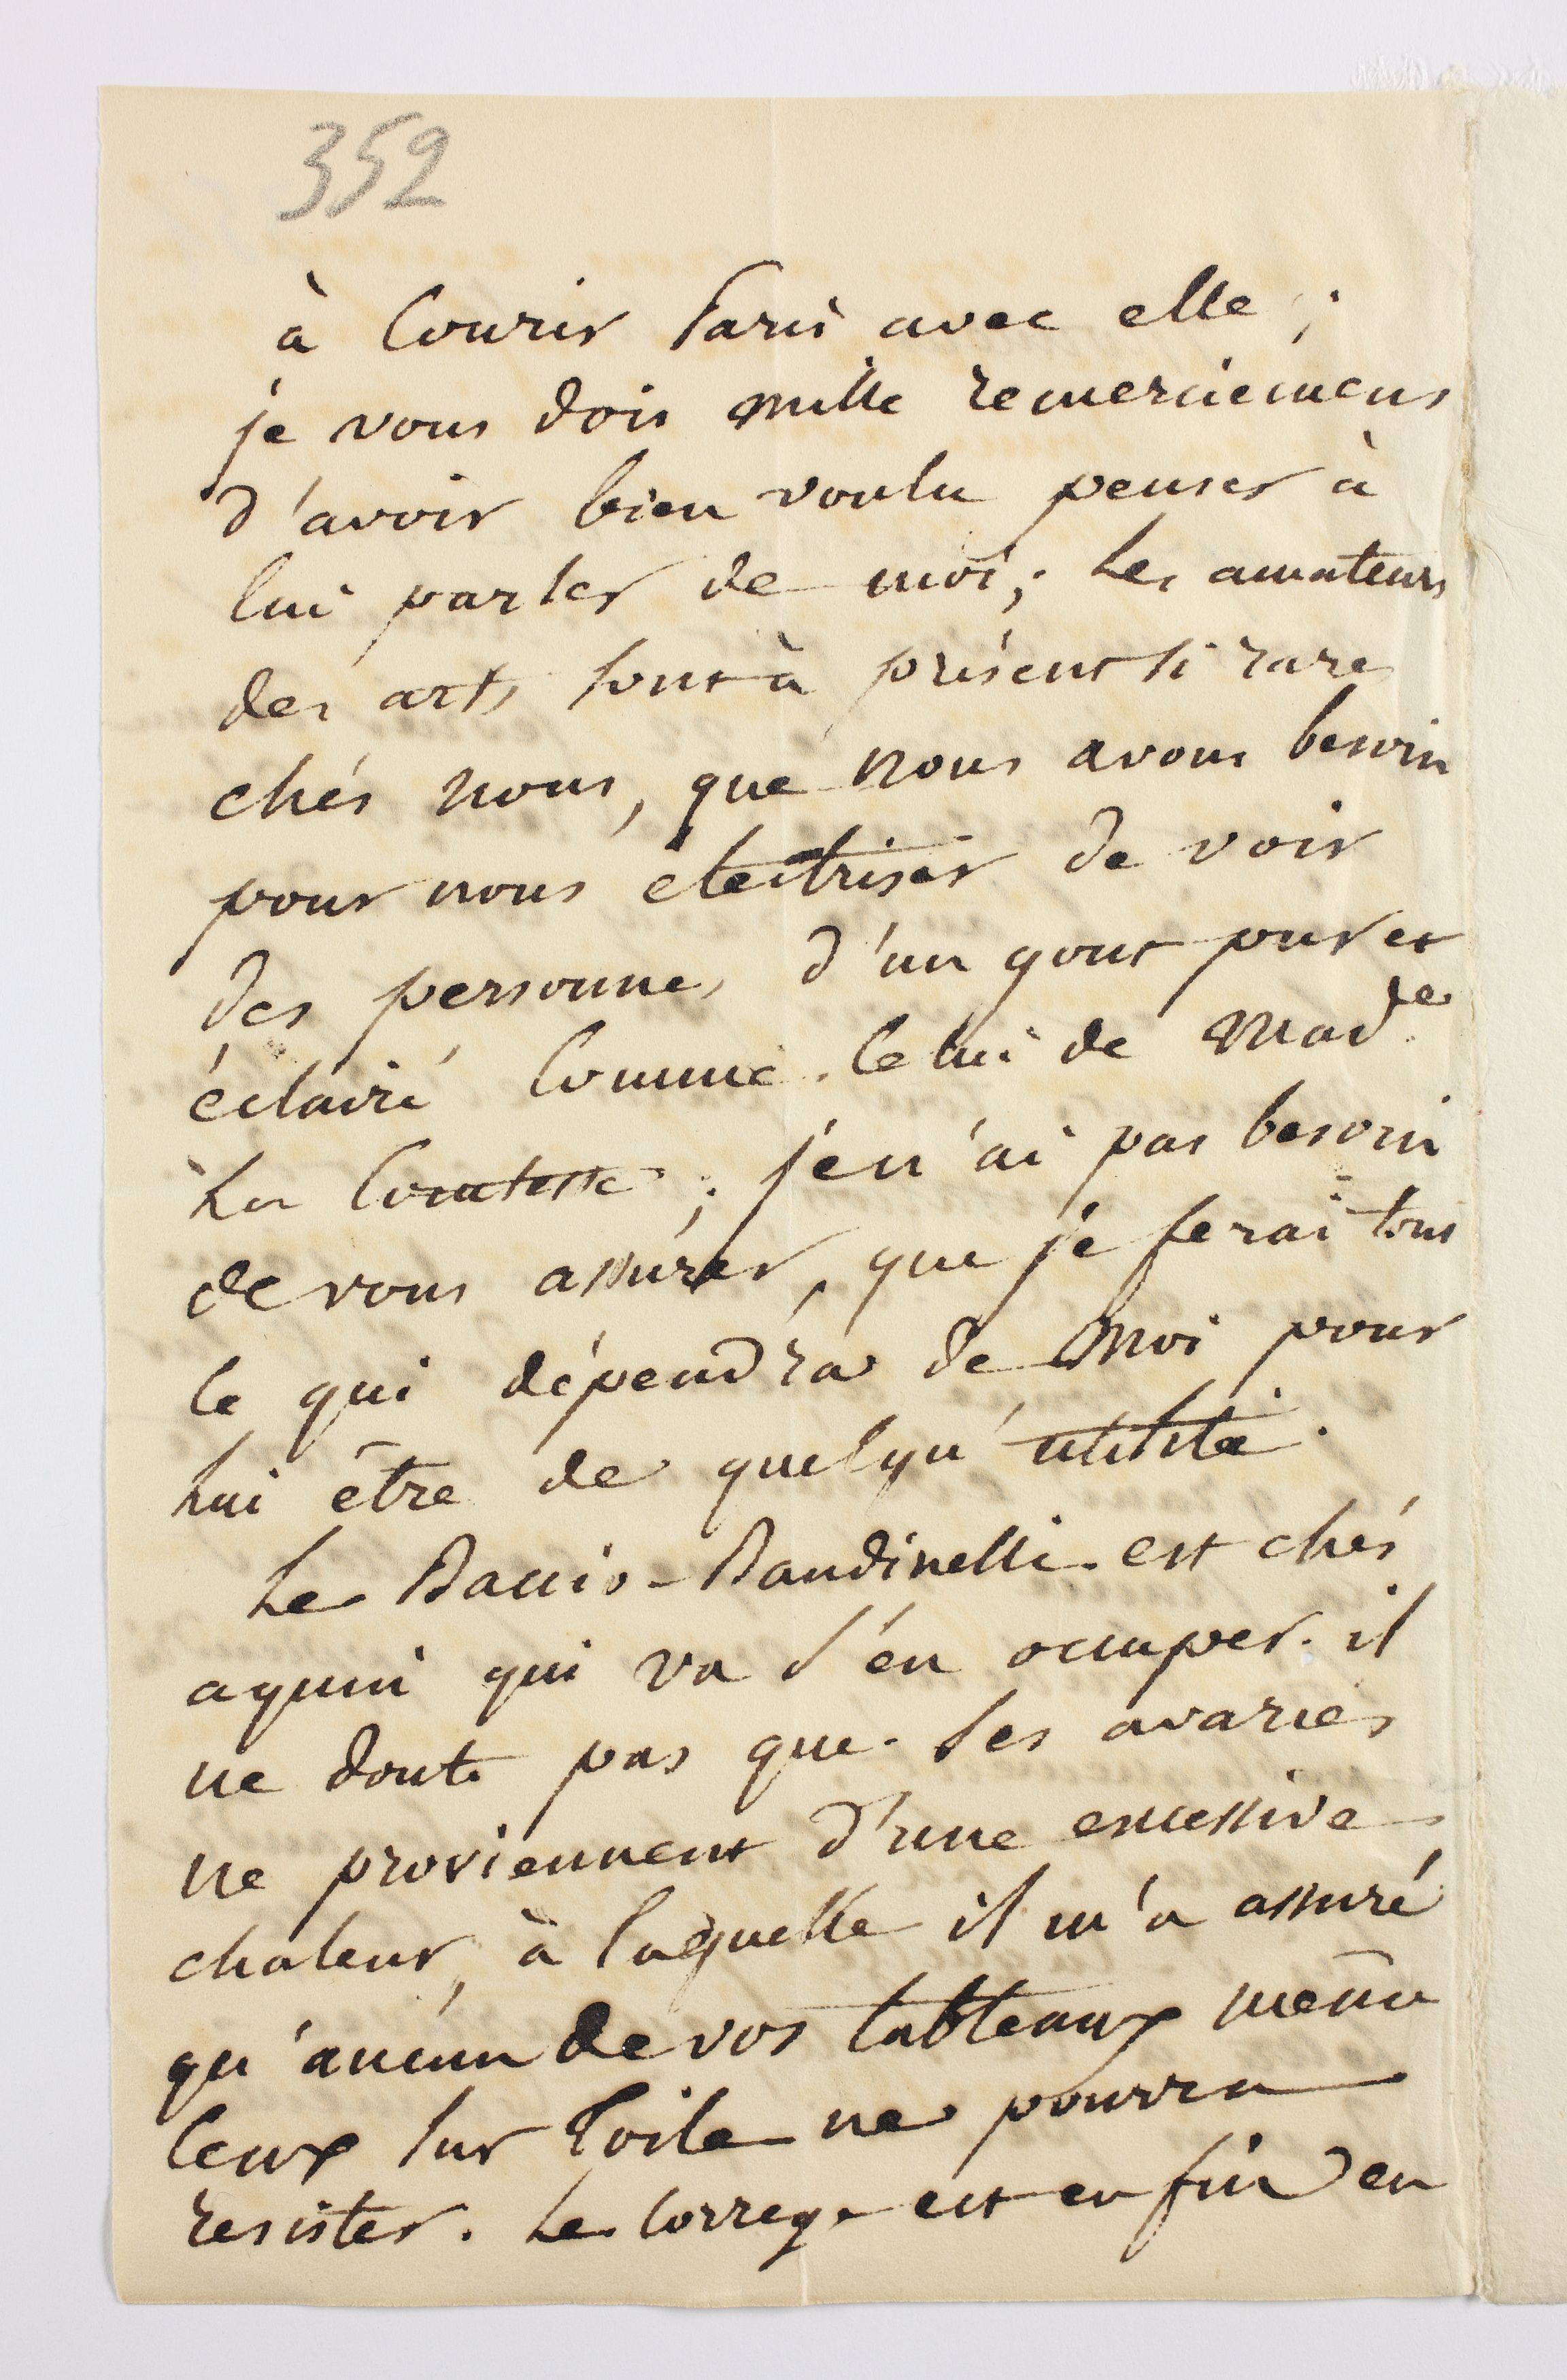 352
à Courir Paris avec elle ;
je vous dois mille remerciemens
d'avoir bien voulu penser à
lui parler de moi ; les amateurs
des arts sont à présent si rares
chés nous, que nous avons besoin
pour nous electriser de voir
des personnes d'un gout pur et
éclairé comme celui de Mad.de
La Comtesse ; je n'ai pas besoin
de vous assurer, que je ferai tous
ce qui dépendra de Moi pour
lui être de quelqu'utilité.
Le Baccio-Bandinelli est chés
aquin qui va s'en occuper. il
ne doute pas que ses avaries
ne proviennent d'une excessive
chaleur, à laquelle il m'a assuré
qu'aucun de vos tableaux même
ceux sur toile ne pourra
resister. Le Correge est enfin en